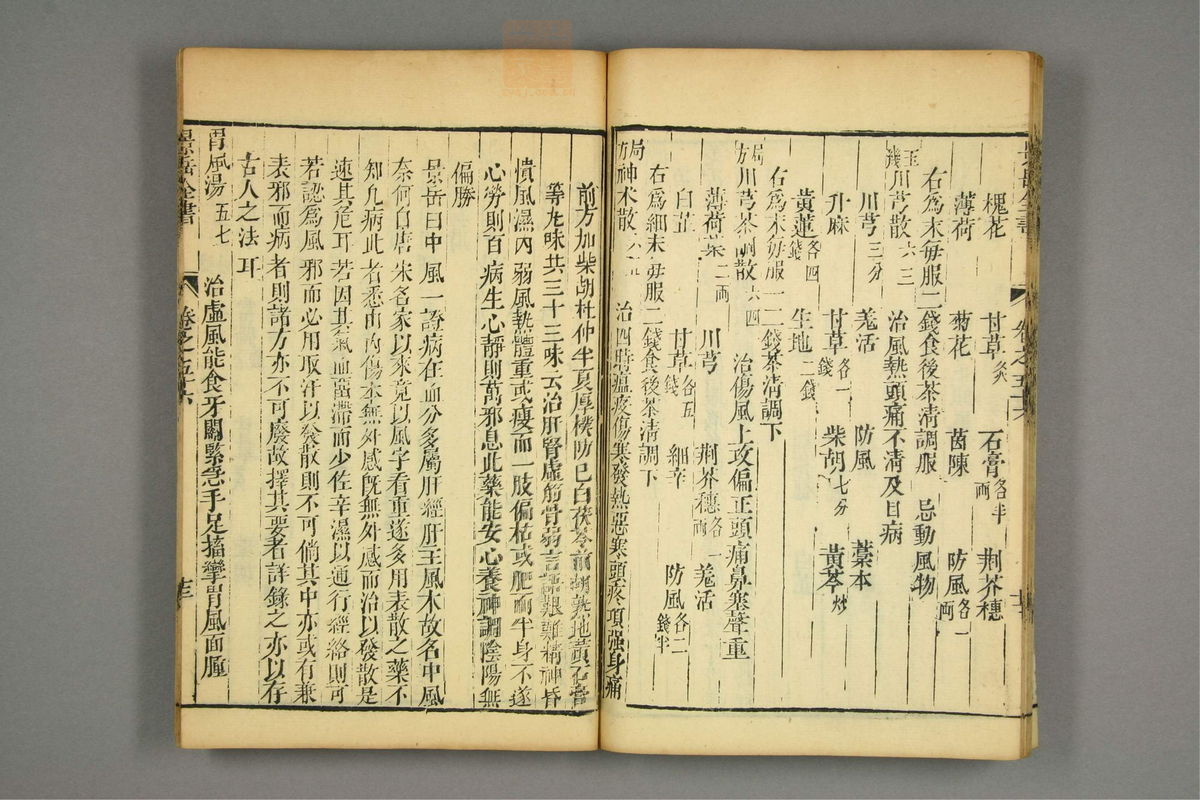 槐花 甘草炙 石膏各半兩 荆芥穗
薄荷 菊花 茵陳 防風各一兩
右為末每服二錢食後茶清調服 忌動風物
玉機川芎散六三 治風熱頭痛不清及目病
川芎三分 羗活 防風 藁本
升麻 甘草各一錢 柴胡七分 黃芩炒
黃蓮各四錢 生地二錢
右為末每服一二錢茶清調下
局方川芎茶調散六四 治傷風上攻偏正頭痛鼻塞聲重
薄荷葉二兩 川芎 荆芥穗各一兩 羗活
白芷 甘草各五錢 細辛 防風各二錢半
右為細末每服二錢食後茶清調下
局方神术散 治四時瘟疫傷寒發熱惡寒頭疼項强身痛
前方加柴胡杜仲半夏厚樸防已白茯苓前胡熟地黃石膏
等九味共三十三味云治肝腎虛筋骨弱言語艱難精神昏
憒風濕內弱風熱體重或瘦而一肢偏枯或肥而半身不遂
心勞則百病生心靜則萬邪息此藥能安心養神調陰陽無
偏勝
景岳曰中風一證病在血分多屬肝經肝主風木故名中風
奈何自唐宋名家以來竟以風字看重遂多用表散之藥不
知凡病此者悉由內傷本無外感既無外感而治以發散是
速其危耳若因其氣血留滯而少佐辛濕以通行經絡則可
若認為風邪而必用取汗以發散則不可倘其中亦或有兼
表邪而病者則諸方亦不可廢故擇其要者詳錄之亦以存
古人之法耳
胃風湯五七 治虛風能食牙關緊急手足搐攣胃風面腫
景岳全書 卷之五十六